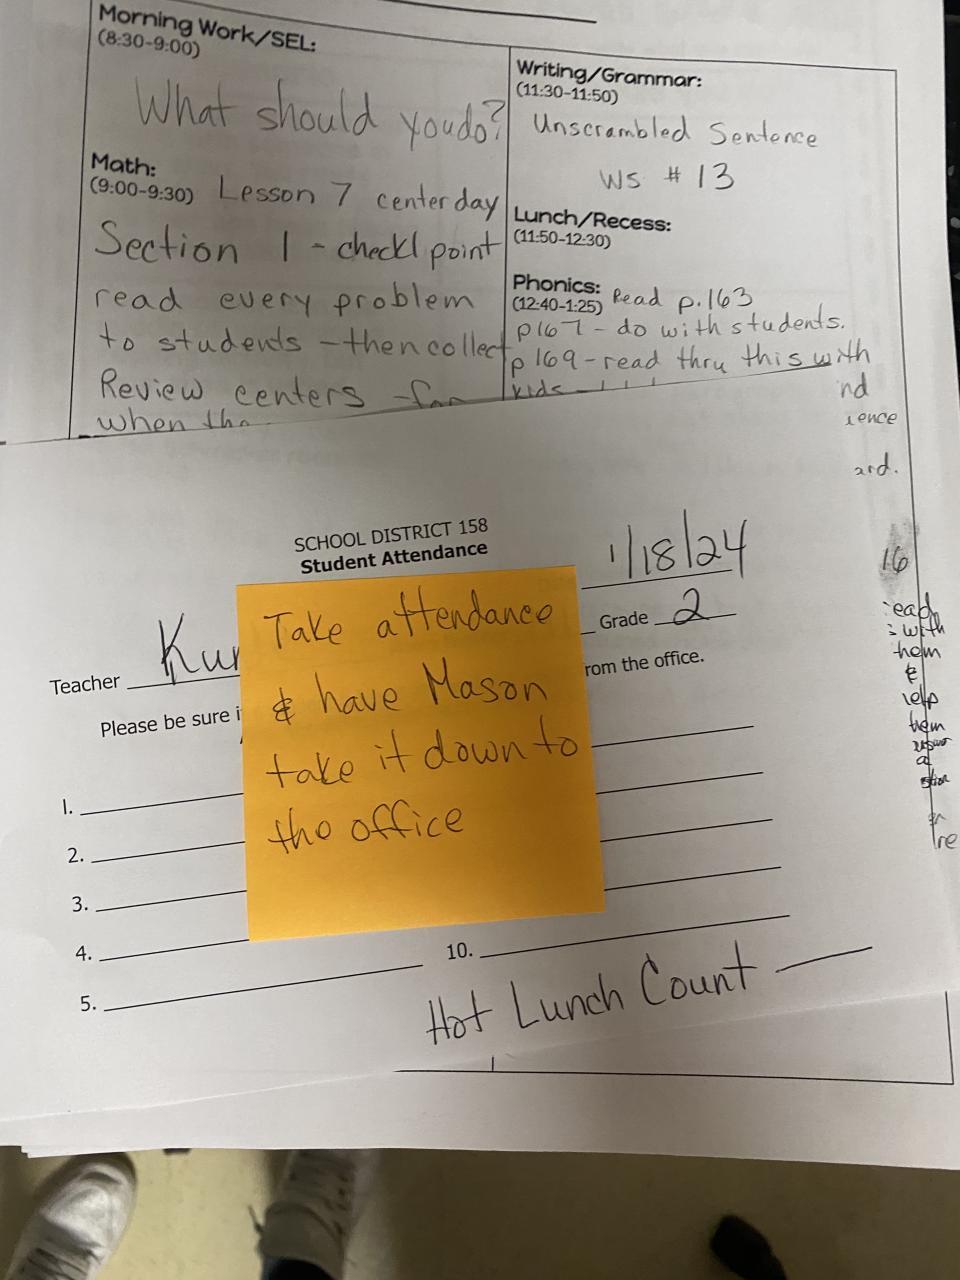 Morning Work/SEL:
(8:30-9:00)
What should you do?
Math:
(9:00-9:30) Lesson 7 center day
Section 1 - check point
read every problem
to students - then collect
Review centers -
when
Writing/Grammar:
(11:30-11:50)
Unscrambled Sentence
WS # 13
Lunch/Recess:
(11:50-12:30)
Phonics:
(12:40-1:25) Read p.163
p167 - do with students.
p169 - read thru this with
kids
nd
ience
ard.
16
with
them
&
help
them
SCHOOL DISTRICT 158
Student Attendance
1/18/24
Teacher Kur
Grade 2
Please be sure i
rom the office.
Take attendance
& have Mason
take it down to
the office
1.
2.
3.
4.
5.
10.
Hot Lunch Count